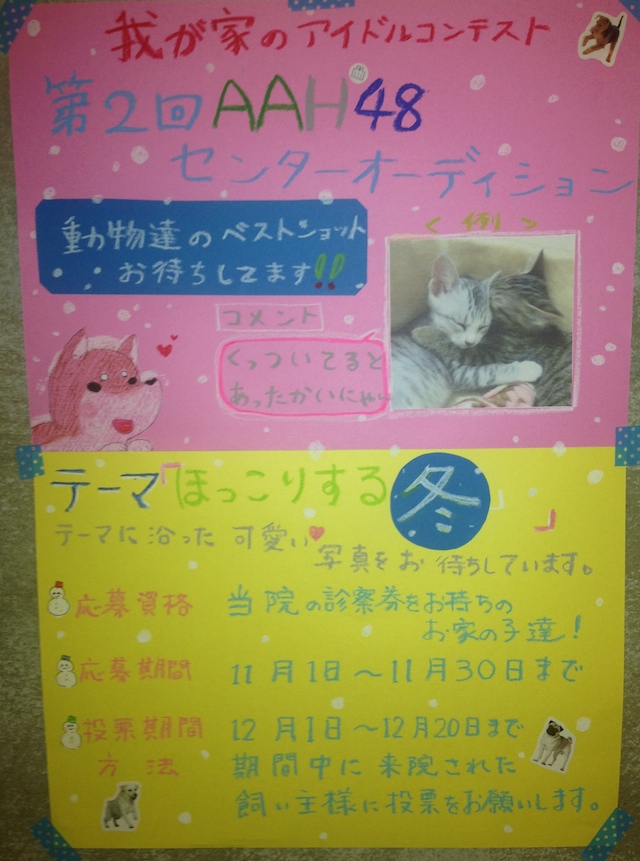 我が家のアイドルコンテスト
第2回 AAH48
センターオーディション
動物達のベストショット
お待ちしてます!!
<例>
コメント
くっついてると
あったかいにゃぃ
テーマ「ほっこりする冬」
テーマに沿った可愛い♥
写真をお待ちしています。
応募資格 当院の診察券をお持ちの
お家の子達!
応募期間 11月1日~11月30日まで
投票期間 12月1日~12月20日まで
方法 期間中に来院された
飼い主様に投票をお願いします。